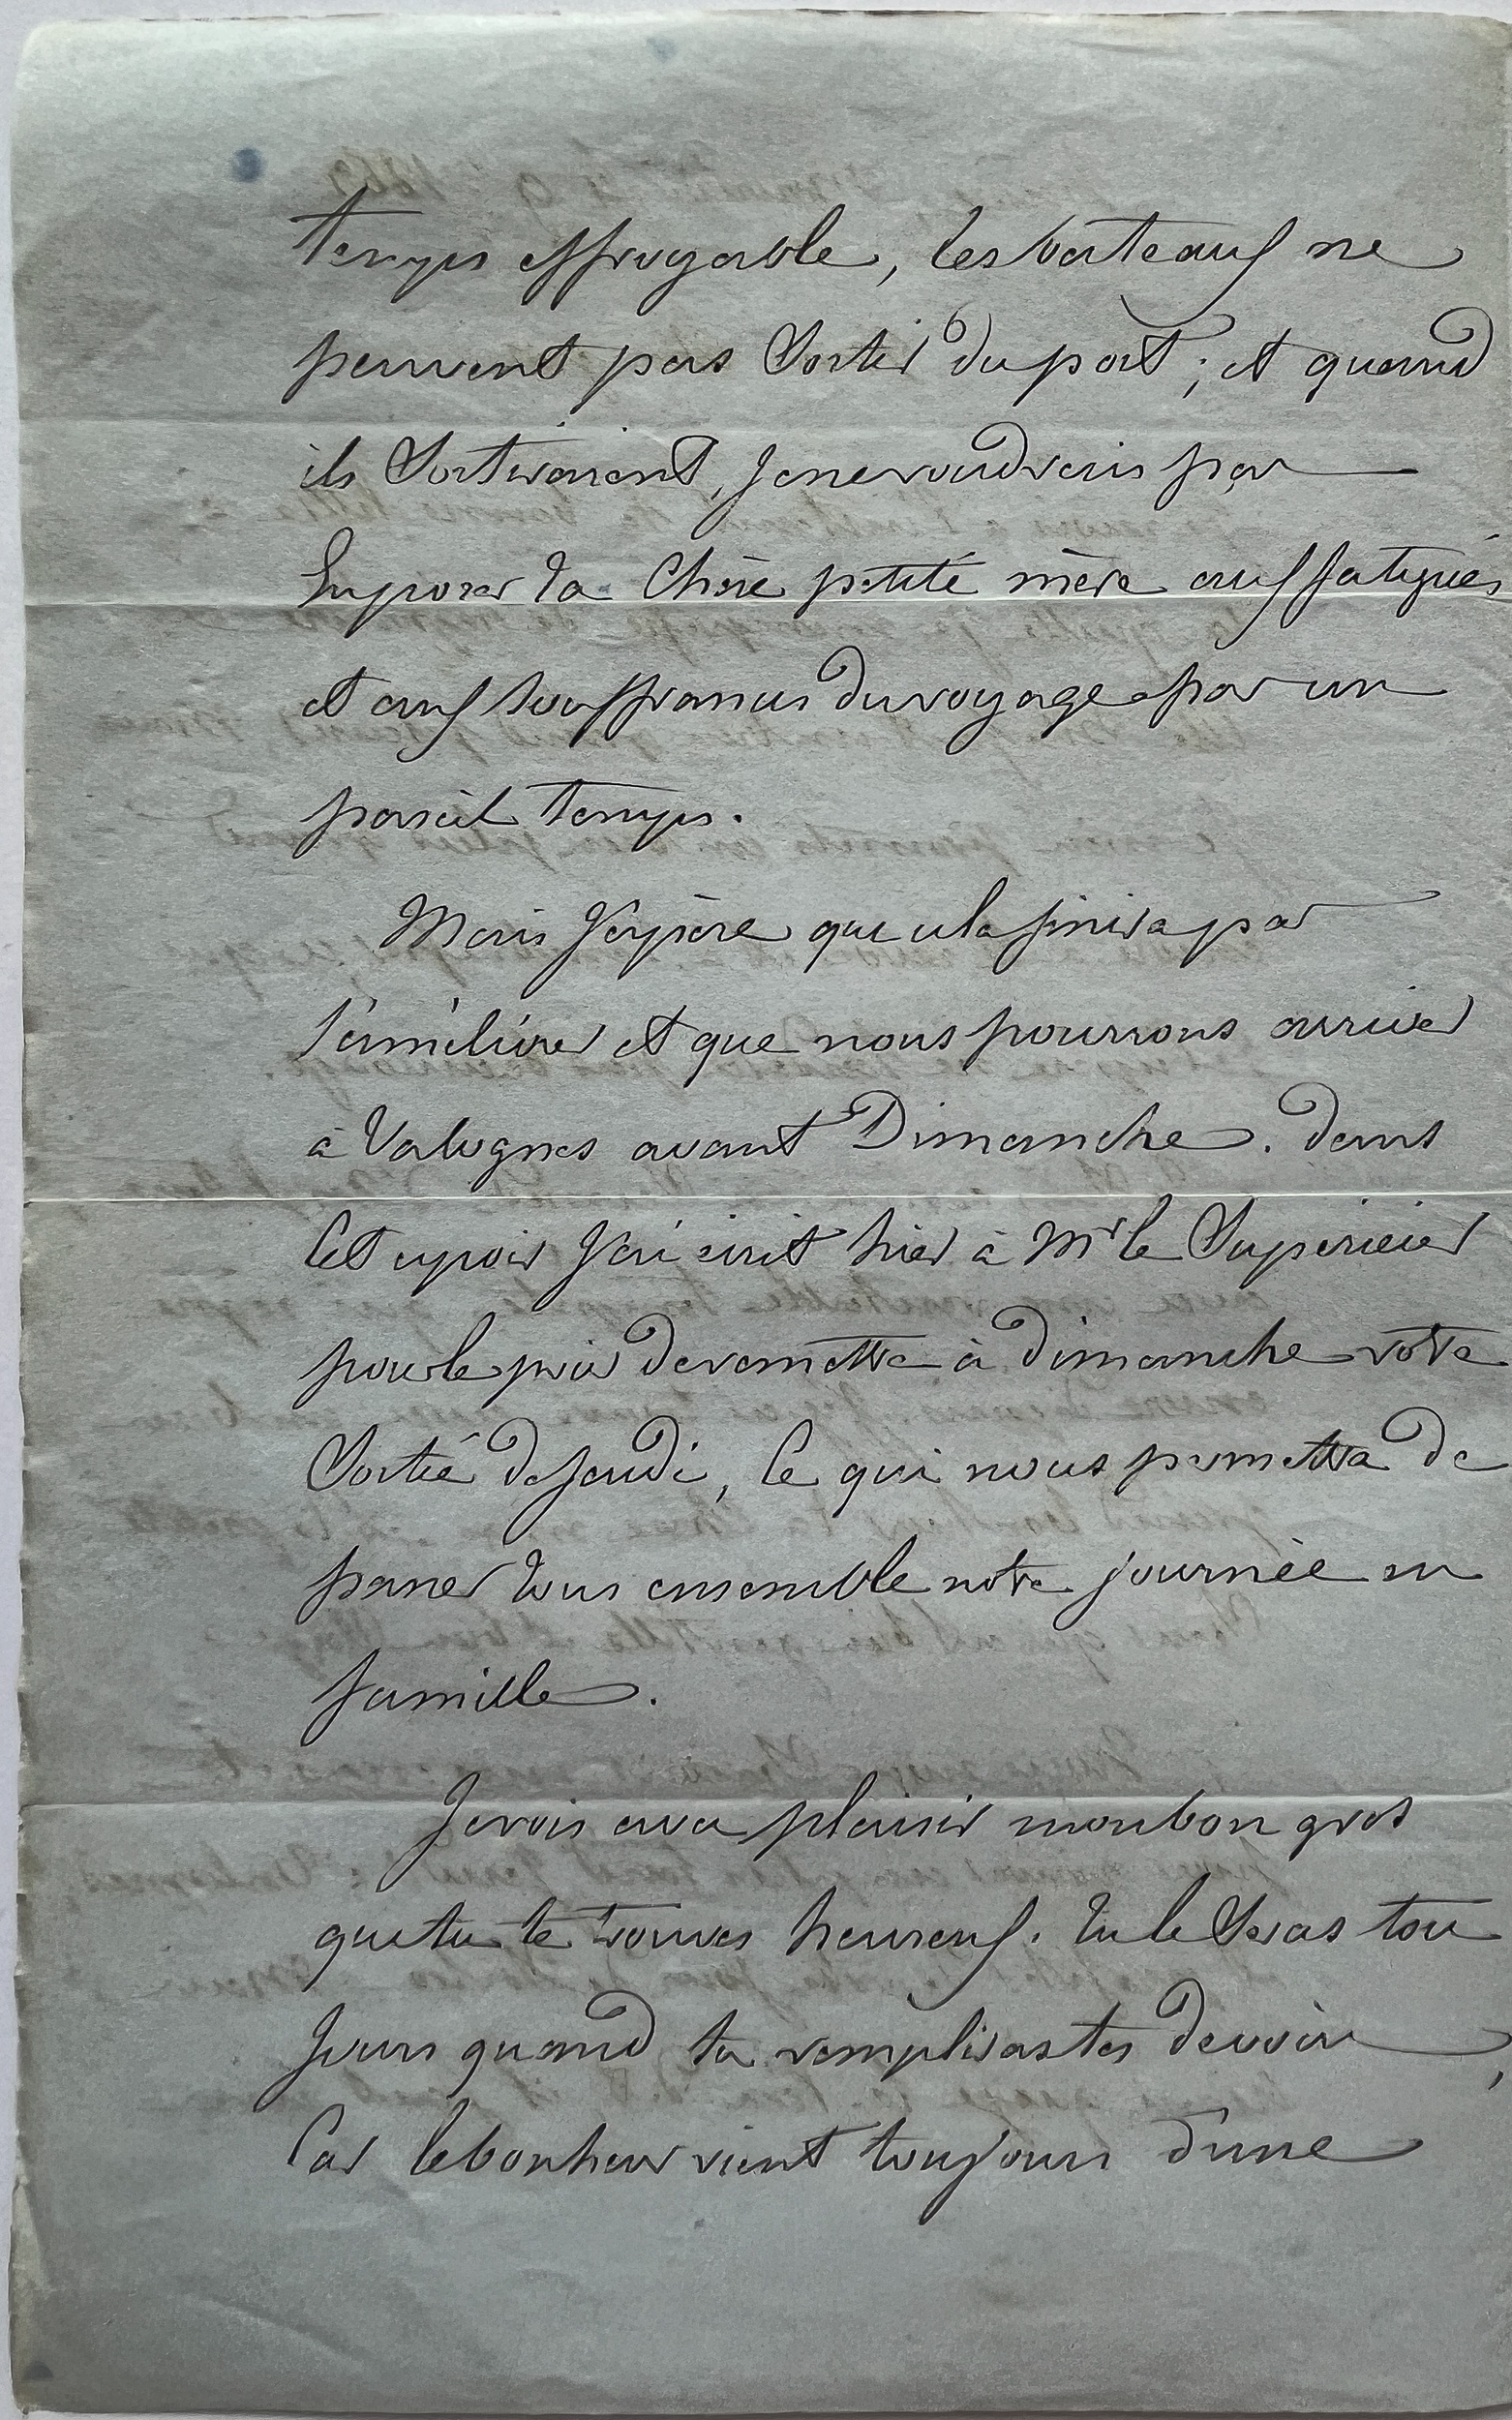 temps effroyable, les bateaux ne
peuvent pas sortir du port ; et quand
ils sortiraient, je ne voudrais pas
exposer ta chère petite mère aux fatigues
et aux souffrances du voyage par un
pareil temps.
Mais j'espère que cela finira par
s'améliorer et que nous pourrons arriver
à Valognes avant Dimanche. dans
cet espoir j'ai écrit hier à Mr le Supérieur
pour le prier de remettre à dimanche votre
sortie de jeudi, ce qui nous permettra de
passer tous ensemble notre journée en
famille.
Je vois avec plaisir mon bon gros
que tu te trouves heureux. tu le seras tou
jours quand tu rempliras tes devoirs,
car le bonheur vient toujours d'une